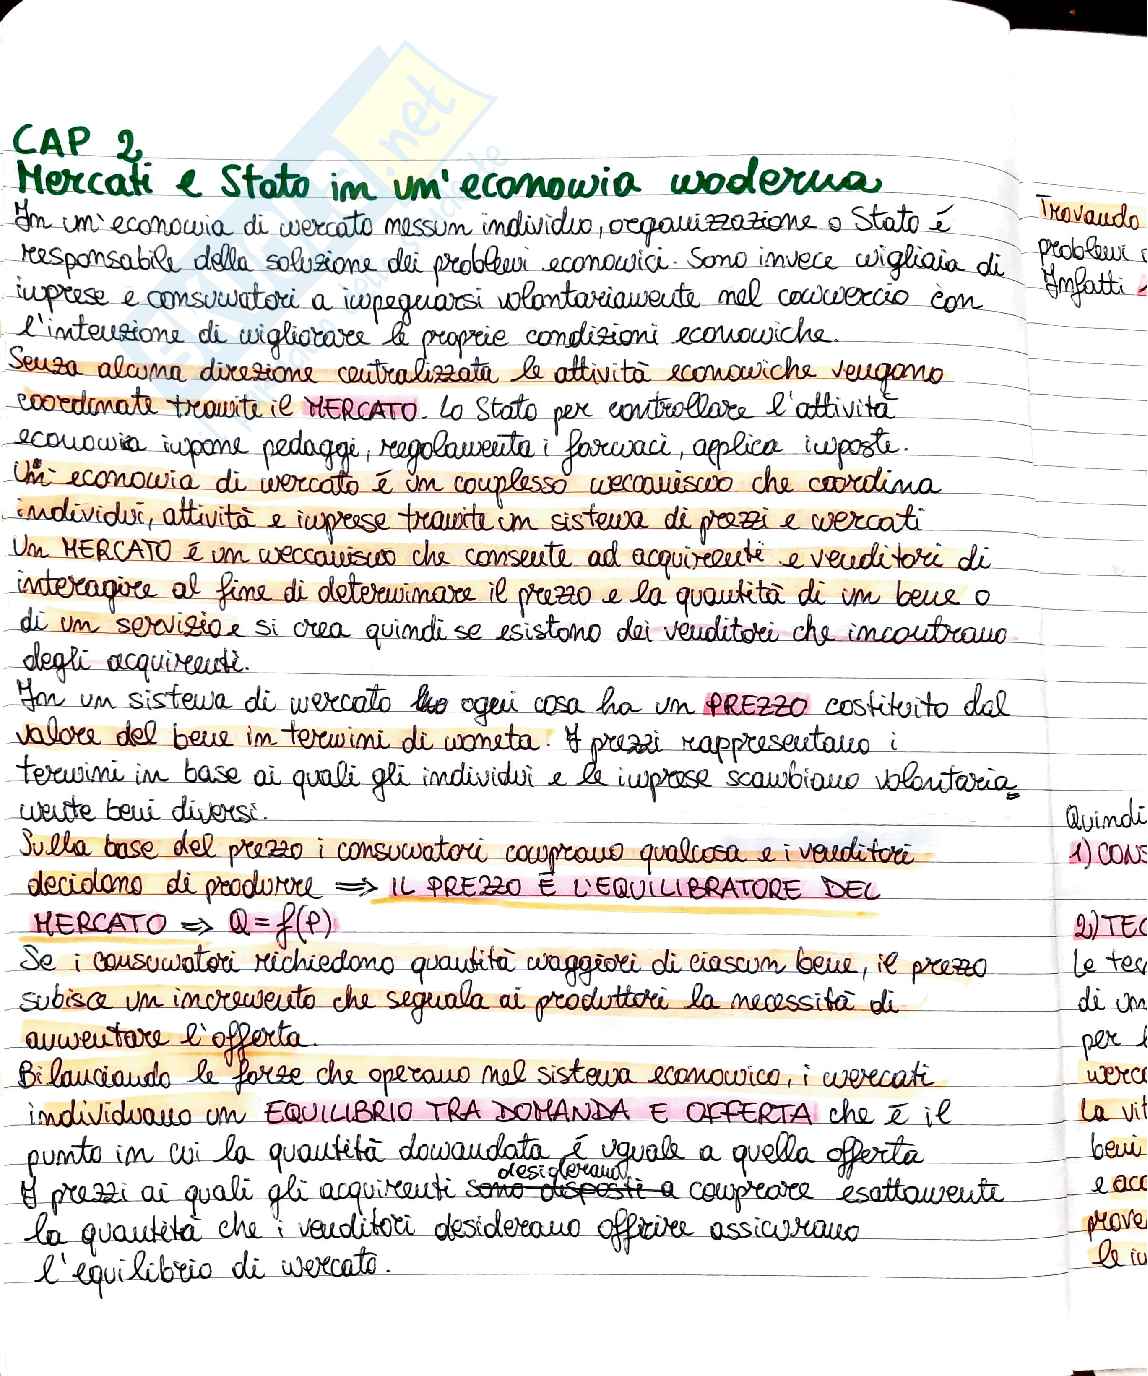 CAP 2
Mercati e Stato in un'economia moderna
In un'economia di mercato nessun individuo, organizzazione o Stato é
responsabile della soluzione dei problemi economici. Sono invece migliaia di
imprese e consumatori a impegnarsi volontariamente nel commercio con
l'intenzione di migliorare le proprie condizioni economiche.
Senza alcuna direzione centralizzata le attività economiche vengono
coordinate tramite il MERCATO. Lo Stato per controllare l'attività
economia impone pedaggi, regolamenta i farmaci, applica imposte.
Un' economia di mercato é un complesso meccanismo che coordina
individui, attività e imprese tramite un sistema di prezzi e mercati
Un MERCATO é un meccanismo che consente ad acquirenti e venditori di
interagire al fine di determinare il prezzo e la quantità di un bene o
di un servizio e si crea quindi se esistono dei venditori che incontrano
degli acquirenti.
In un sistema di mercato ogni cosa ha un PREZZO costituito dal
valore del bene in termini di moneta. I prezzi rappresentano i
termini in base ai quali gli individui e le imprese scambiano volontaria
mente beni diversi.
Sulla base del prezzo i consumatori comprano qualcosa e i venditori
decidono di produrre => IL PREZZO É L'EQUILIBRATORE DEL
MERCATO => Q = f(P)
Se i consumatori richiedono quantità maggiori di ciascun bene, il prezzo
subisce un incremento che segnala ai produttori la necessità di
aumentare l'offerta.
Bilanciando le forze che operano nel sistema economico, i mercati
individuano un EQUILIBRIO TRA DOMANDA E OFFERTA che é il
punto in cui la quantità domandata é uguale a quella offerta
desiderano
I prezzi ai quali gli acquirenti sono disposti a comprare esattamente
la quantità che i venditori desiderano offrire assicurano
l'equilibrio di mercato.
Trovando
problemi
Infatti
Quindi
1) CONS
2) TEC
Le tec
di un
per l
merca
La vit
beni
e acc
prove
le im